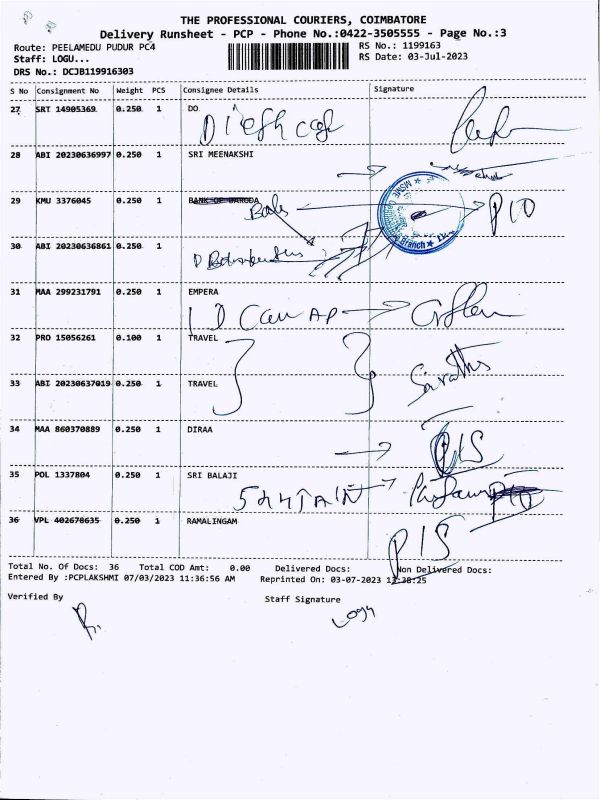 THE PROFESSIONAL COURIERS, COIMBATORE
Delivery Runsheet - PCP - Phone No.:0422-3505555 - Page No.:3
Route: PEELAMEDU PUDUR PC4
RS No.: 1199163
Staff: LOGU...
RS Date: 03-Jul-2023
DRS No.: DCJB119916303
S No Consignment No Weight PCS Consignee Details Signature
27 SRT 14905369 0.250 1 DO
28 ABI 20230636997 0.250 1 SRI MEENAKSHI
29 KMU 3376045 0.250 1 BANK OF BARODA
P10
30 ABI 20230636861 0.250 1
Branch
31 MAA 299231791 0.250 1 EMPERA
32 PRO 15056261 0.100 1 TRAVEL
33 ABI 20230637019 0.250 1 TRAVEL
34 MAA 860370889 0.250 1 DIRAA
P1S
35 POL 1337804 0.250 1 SRI BALAJI
36 VPL 402670635 0.250 1 RAMALINGAM
P1S
Total No. Of Docs: 36 Total COD Amt: 0.00 Delivered Docs: Non Delivered Docs:
Entered By :PCPLAKSHMI 07/03/2023 11:36:56 AM Reprinted On: 03-07-2023 12:38:25
Verified By Staff Signature
Logu